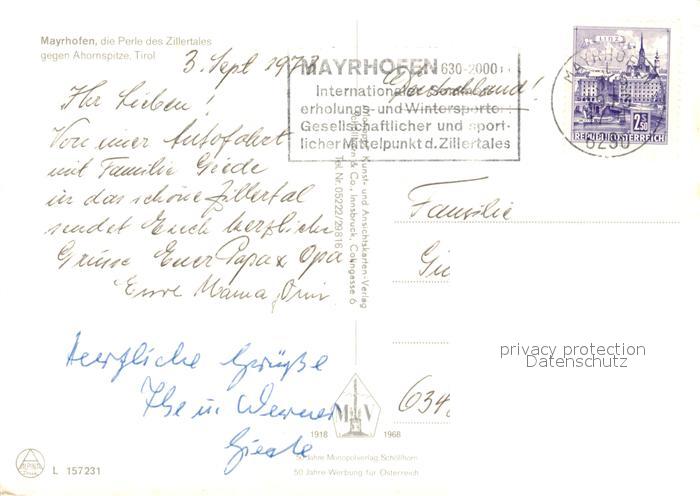 Mayrhofen, die Perle des Zillertales
gegen Ahornspitze, Tirol
3. Sept 1973
Ihr Lieben!
Von einer Autofahrt
mit Familie Giede
in das schöne Zillertal
sendet Euch herzliche
Grüsse Euer Papa & Opa
Eure Mama, Omi
herzliche Grüße
Ilse u. Werner
Giede
MAYRHOFEN 630-2000 m
Internationaler
erholungs- und Wintersportort
Gesellschaftlicher und sport-
licher Mittelpunkt d. Zillertales
Deutschland!
LINZ
2.50
REPUBLIK ÖSTERREICH
MAYRHOFEN
6290
Kunst- und Ansichtskarten-Verlag
& Co., Innsbruck, Colingasse 6
Tel. Nr. 05222/29816
Familie
Gi
634
privacy protection
Datenschutz
M V
1918 1968
50 Jahre Monopolverlag Schöllhorn
50 Jahre Werbung für Österreich
L 157231